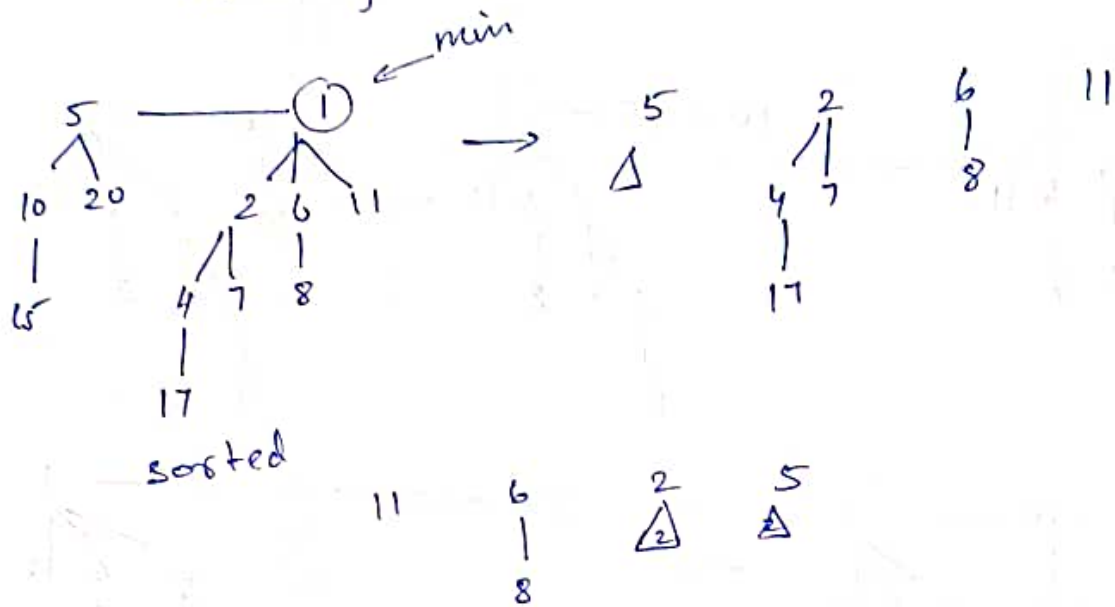 min
5 1 → 5 2 6 11
10 20 2 6 11 4 7 8
15 4 7 8 17
17
sorted
11 6 2 5
2 2
8